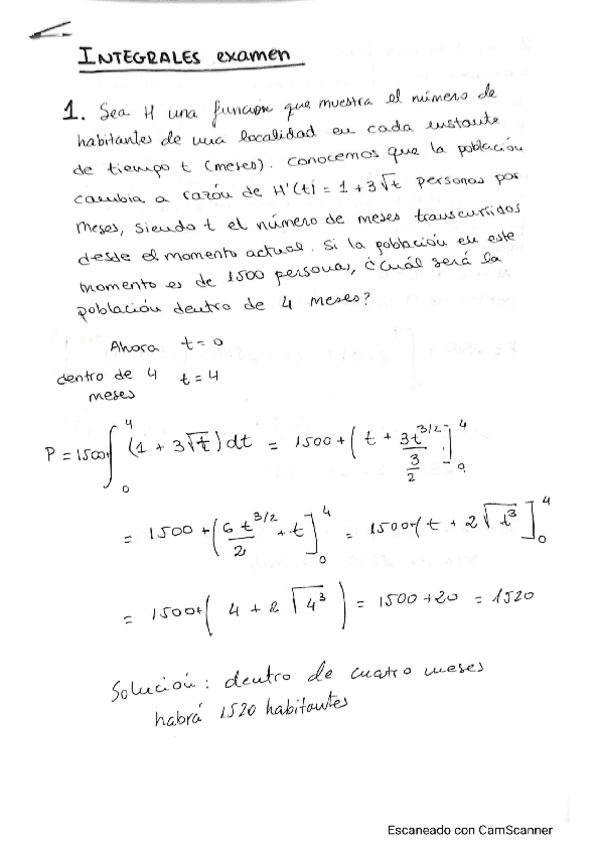 INTEGRALES examen
1. Sea H una función que muestra el número de
habitantes de una localidad en cada instante
de tiempo t (meses). Conocemos que la población
cambia a razón de H'(t) = 1 + 3√t personas por
meses, siendo t el número de meses transcurridos
desde el momento actual. Si la población en este
momento es de 1500 personas, ¿cuál será la
población dentro de 4 meses?
Ahora t = 0
dentro de 4 t = 4
meses
P = 1500+∫₀⁴ (1 + 3√t) dt = 1500 + (t + 3t^(3/2) / (3/2)]₀⁴
= 1500 + (6t^(3/2)/2 + t]₀⁴ = 1500+(t + 2√t³]₀⁴
= 1500+(4 + 2√4³) = 1500+20 = 1520
Solución: dentro de cuatro meses
habrá 1520 habitantes
Escaneado con CamScanner